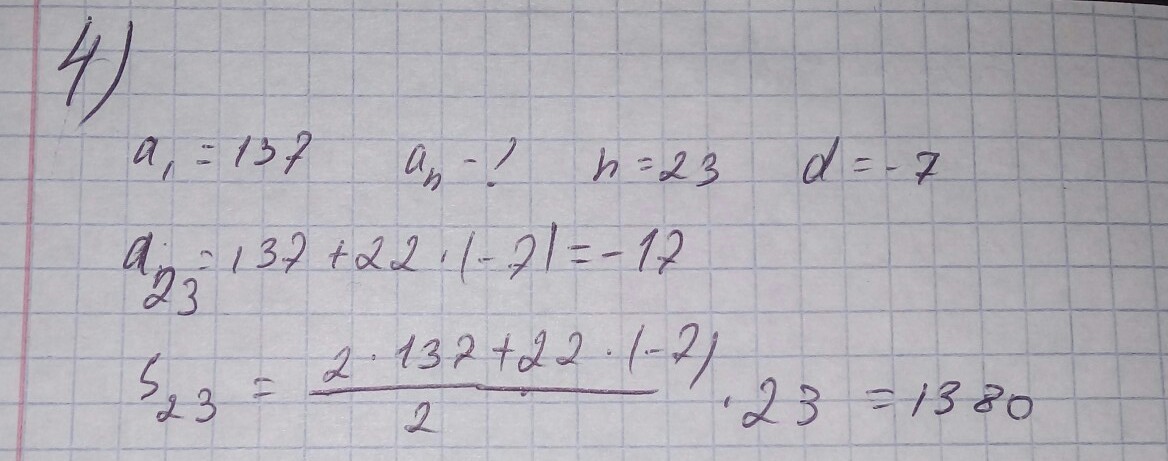 4)
a₁ = 137 aₙ - ? n = 23 d = -7
a₂₃ = 137 + 22 · (-7) = -17
S₂₃ = (2 · 137 + 22 · (-7)) / 2 · 23 = 1380